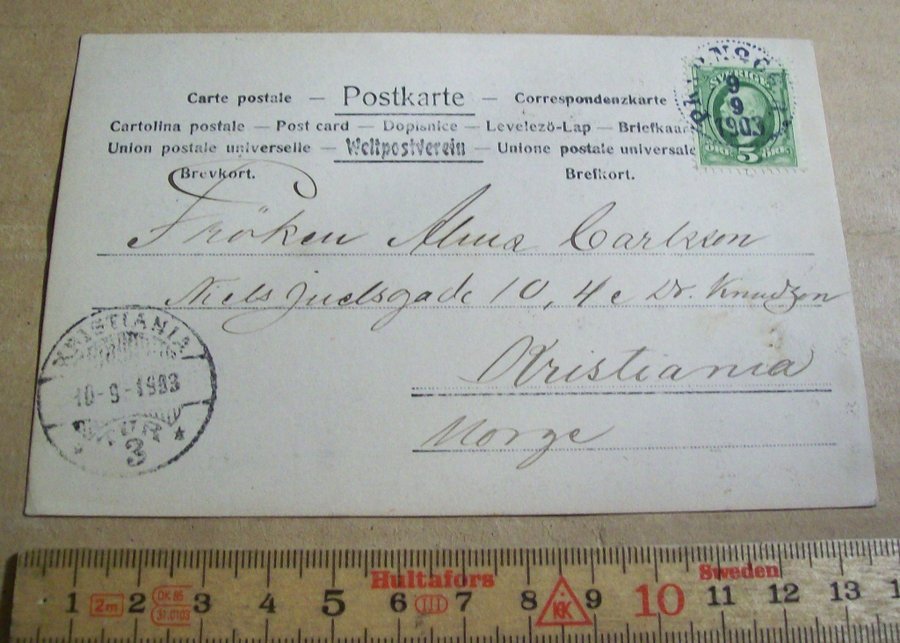 Carte postale — Postkarte — Correspondenzkarte
Cartolina postale — Post card — Dopisnice — Levelező-Lap — Briefkaar
Union postale universelle — Weltpostverein — Unione postale universale
Brevkort. Brefkort.
SVERIGE
9
9
1903
5
Fröken Alma Carlsson
Niels Juelsgade 10, 4 e Dr. Knudzon
Kristiania
Norge
KRISTIANIA
10-9-1903
3
Hultafors Sweden
1 2m 2 DK 86 3 4 5 6 III 7 8 9 10 11 12 13